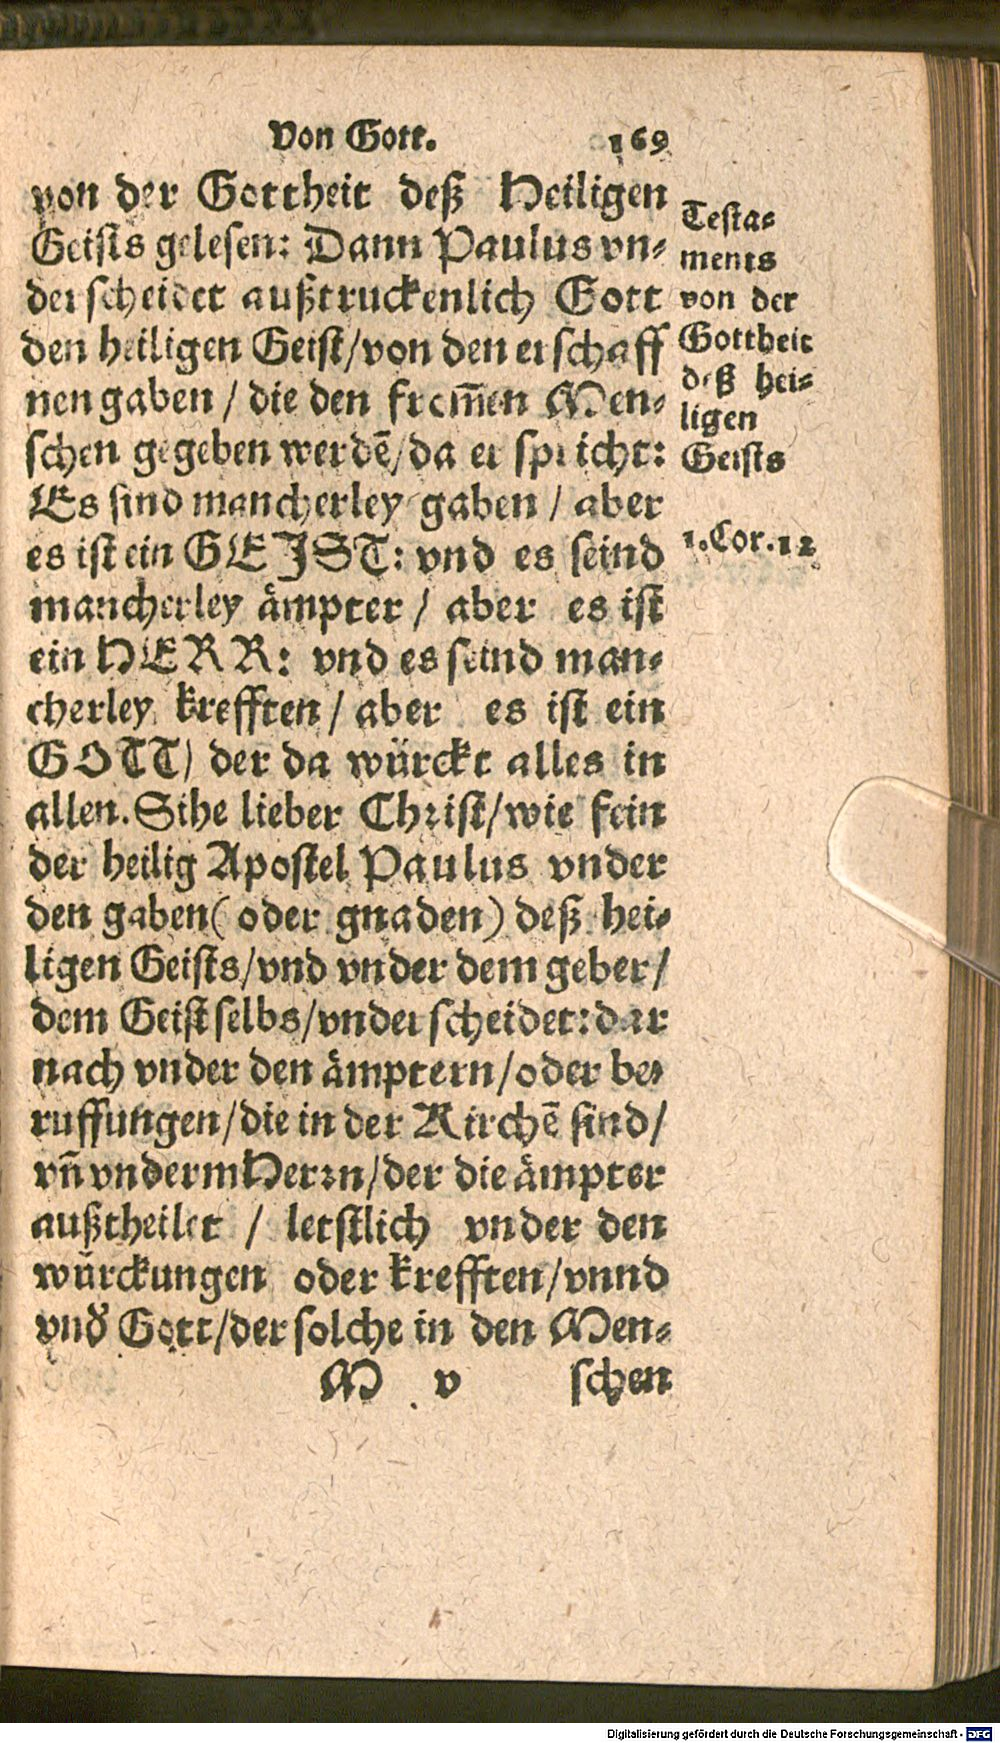 Von Gott. 169
von der Gottheit deß Heiligen
Geists gelesen: Dann Paulus vn⸗
derscheidet außtruckenlich Gott
den heiligen Geist/von den erschaff
nen gaben / die den from̃en Men⸗
schen gegeben werdẽ/da er spricht:
Es sind mancherley gaben / aber
es ist ein GEIST: vnd es seind
mancherley ämpter / aber es ist
ein HERR: vnd es seind man⸗
cherley krefften / aber es ist ein
GOTT) der da würckt alles in
allen. Sihe lieber Christ/wie fein
der heilig Apostel Paulus vnder
den gaben( oder gnaden) deß hei⸗
ligen Geists/vnd vnder dem geber/
dem Geist selbs/vnderscheidet: dar
nach vnder den ämptern/oder be⸗
ruffungen/die in der Kirchẽ sind/
vñ vnderm Herrn/der die ämpter
außtheilet / letstlich vnder den
würckungen oder krefften/vnnd
vnd̕ Gott/der solche in den Men⸗
M v schen
Testa⸗
ments
von der
Gottheit
deß hei⸗
ligen
Geists
1.Cor.12
Digitalisierung gefördert durch die Deutsche Forschungsgemeinschaft - DFG